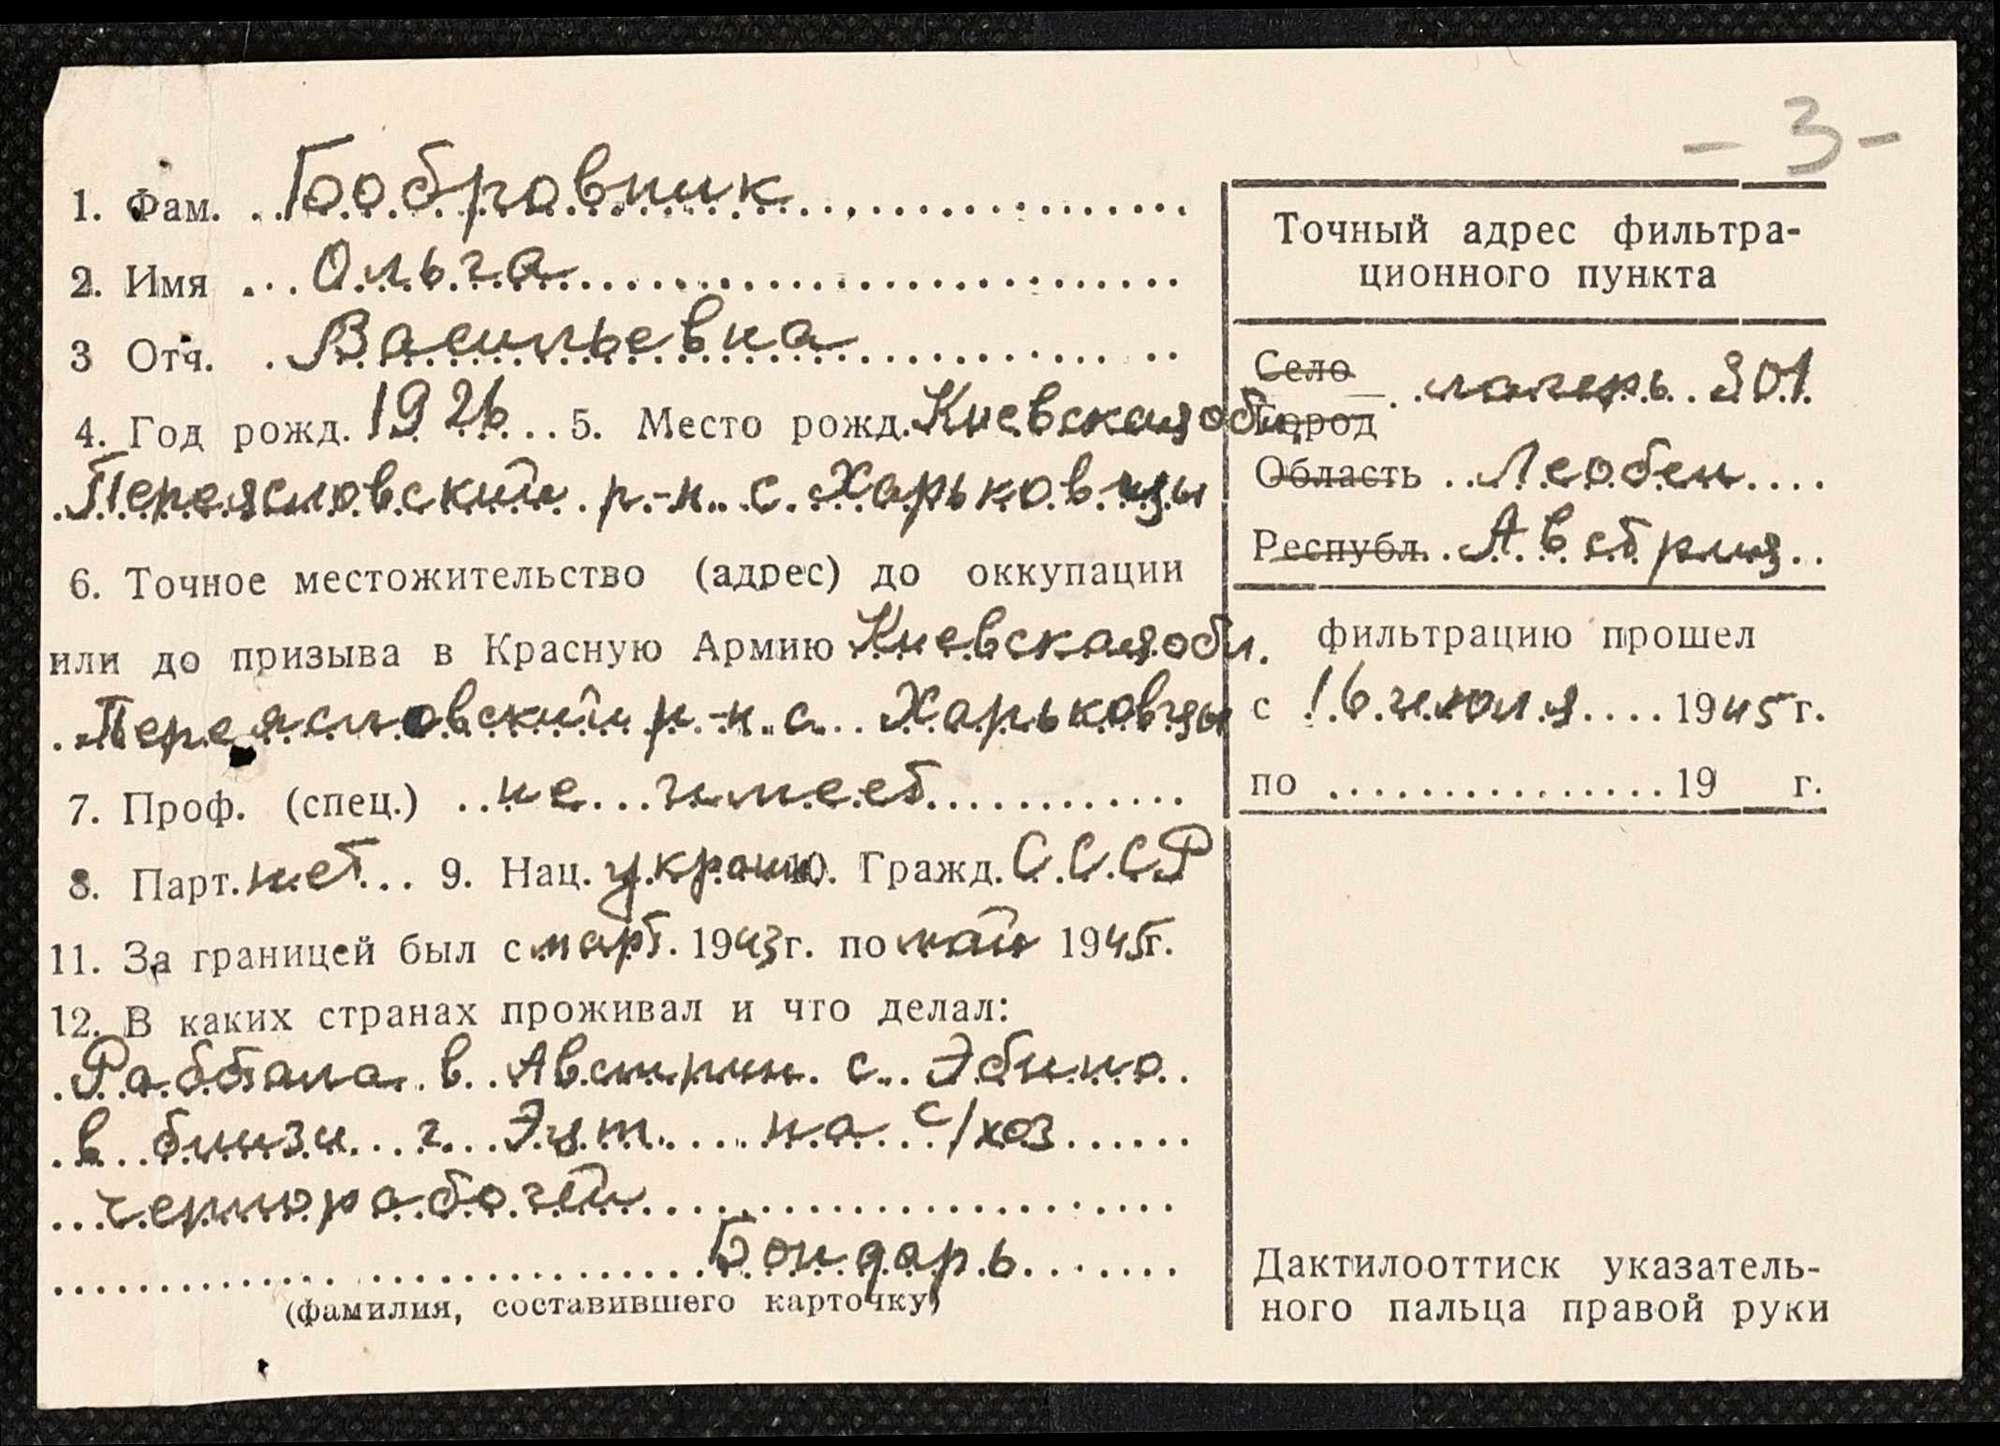 - 3 -
1. Фам. Бобровник
2. Имя Ольга
3 Отч. Васильевна
4. Год рожд. 1926 5. Место рожд. Киевская обл.
Переясловский р-н. с. Харьковцы
6. Точное местожительство (адрес) до оккупации
или до призыва в Красную Армию Киевская обл.
Переясловский р-н. с. Харьковцы
7. Проф. (спец.) не имеет
8. Парт. нет 9. Нац. украин 10. Гражд. СССР
11. За границей был с март. 1943 г. по май 1945 г.
12. В каких странах проживал и что делал:
Работала в Австрии с.
в близи г. на с/хоз
чернорабочей
Бондарь
(фамилия, составившего карточку)
Точный адрес фильтра-
ционного пункта
Село
Город лагерь 301
Область Леобен
Республ. Австрия
фильтрацию прошел
с 16 июля 1945 г.
по 19 г.
Дактилооттиск указатель-
ного пальца правой руки